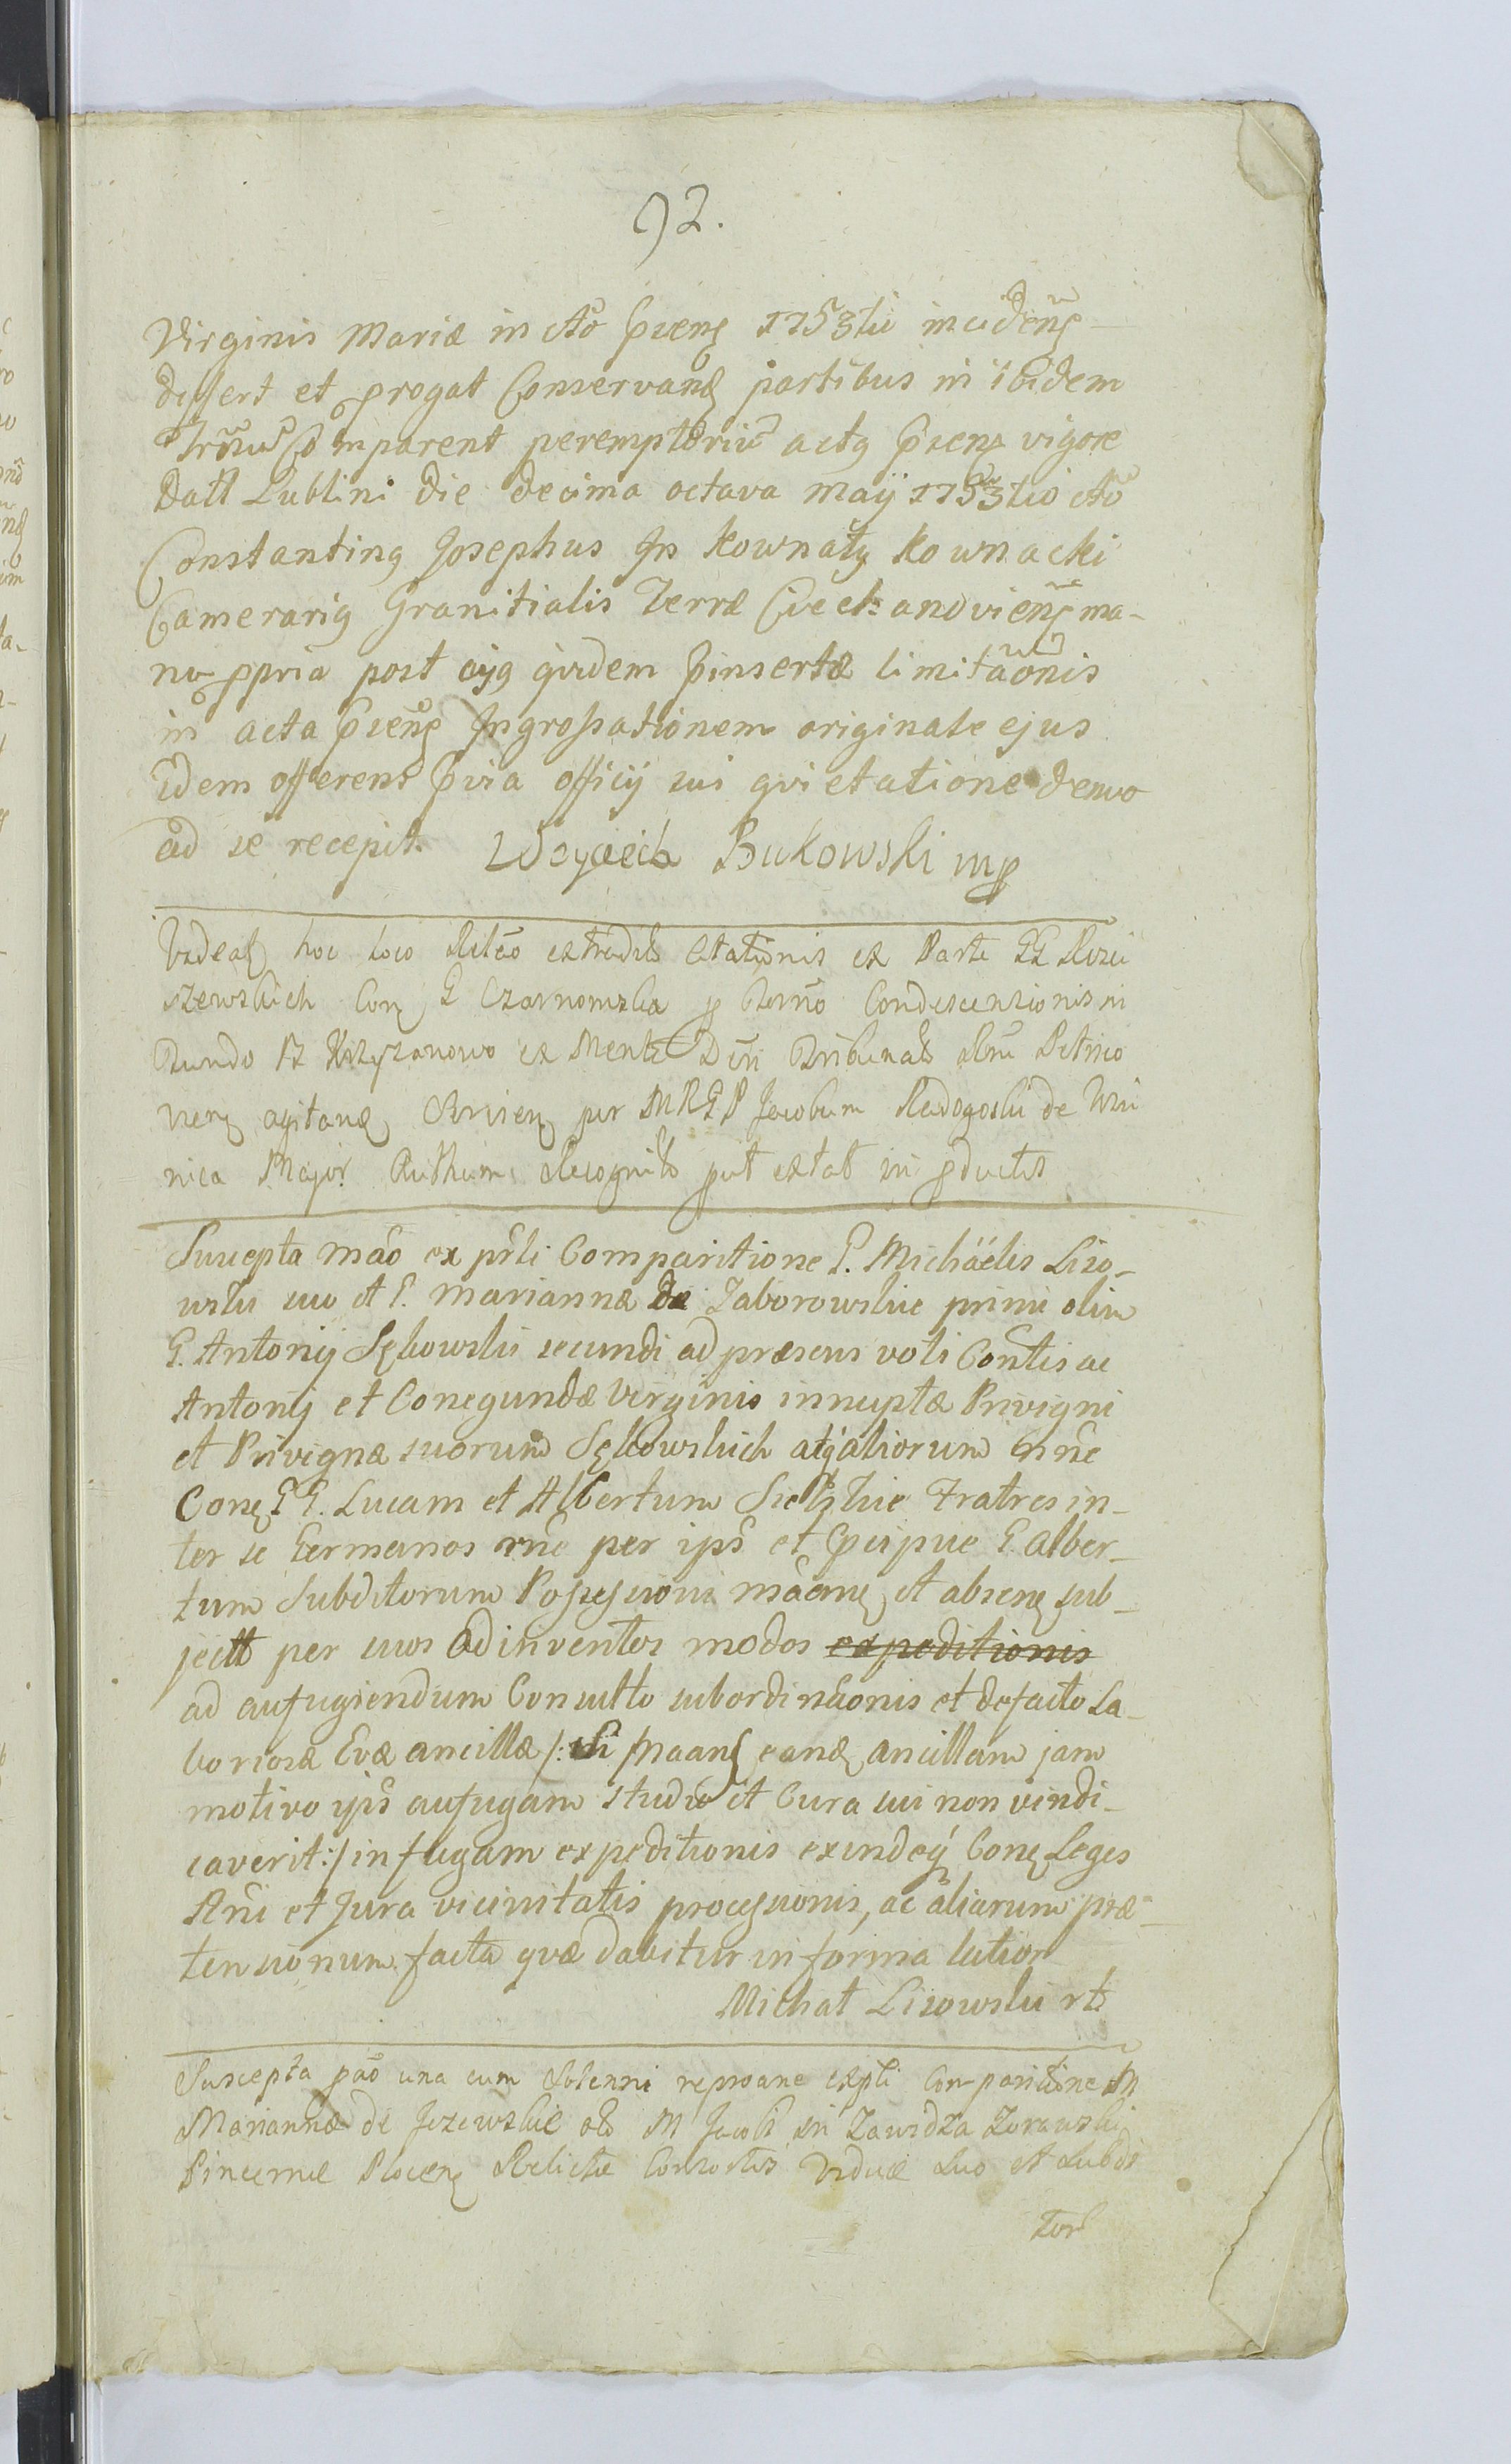 92.
Virginis Mariæ in Ao pñens 1753tii incidens
differt et progat Conservans partibus in ibidem
Trõwi Comparent peremptoriẽ actus pñens vigore
Datt Lublini die decima octava maÿ 1753tio Ao
Constantinus Josephus In Kownaty Kownacki
Camerarius Granitialis Terræ Ciechanoviens ma-
nu ppria post cujus qvidem pinsertæ limitaõnis
in acta pñens Ingrossationem originale ejus
idem offerens pvia officij sui qvietatione denuo
ad se recepit. Woyciech Bukowski mp
Videat hoc loco Relão extradit Citationis ex Parte GG
szewskich Con G Czarnomska p Termo Condescensionis in
Fundo Krzyzanowo ex Mente Dẽti Tribunals Rni Petrico
viens agitand per MRGP Jacobum Radogoski de Win
nica Major Ruthum Recognit put extat in pductis
Suscepta mão ex pñti Comparitione G. Michäelis Liso-
wski suo et G. Mariannæ de Zaborowskie primi olim
G. Antonij Sękowski secundi ad præsens voti Conttis ac
Antonij et Conegundæ Virginis innuptæ Privigni
et Privignæ suorum Sękowskich atq aliorum nne
Cons GG. Lucam et Albertum Sielskie Fratres in-
ter se Germanos nne per ips et pcipue G. Alber-
tum Subditorum Possessioni maens et absens sub-
jectt per suos adinventos modos expeditionis
ad aufugiendum Consulto subordinãonis et defacto La-
boriosæ Evæ ancillæ /: maans eand ancillam jam
motivo ips aufugam studio et Cura sui non vindi-
caverit :/ in fugam expeditionis exindeq Cons Leges
Rni et Jura vicinitatis processionis, ac aliarum præ-
tensionum facta qvæ dabitur in forma lution
Michał Lisowski
Suscepta pão una cum Solenni reproane ex pñti Comparitione M
Mariannæ de Jezewskie olo M Jacobi in Zawidza Zorawski
Pincernæ Plocens Relictæ Consortis Viduæ suo et subdi
tor